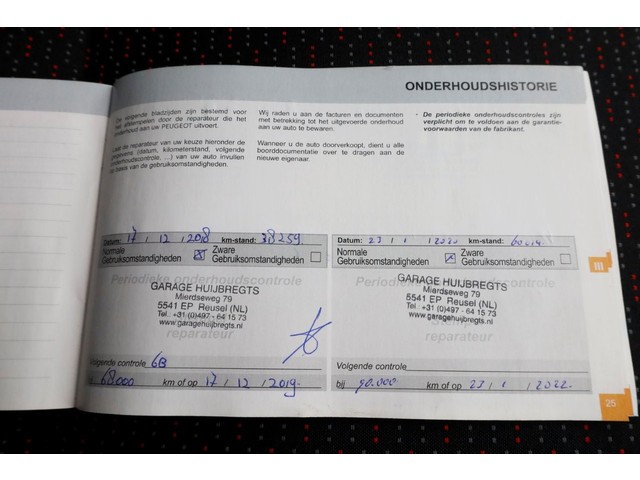 ONDERHOUDSHISTORIE
De volgende bladzijden zijn bestemd voor
het afstempelen door de reparateur die het
onderhoud aan uw PEUGEOT uitvoert.
Laat de reparateur van uw keuze hieronder de
gegevens (datum, kilometerstand, volgende
onderhoudscontrole, ...) van uw auto invullen
op basis van de gebruiksomstandigheden.
Wij raden u aan de facturen en documenten
met betrekking tot het uitgevoerde onderhoud
aan uw auto te bewaren.
Wanneer u de auto doorverkoopt, dient u alle
boorddocumentatie over te dragen aan de
nieuwe eigenaar.
- De periodieke onderhoudscontroles zijn
verplicht om te voldoen aan de garantie-
voorwaarden van de fabrikant.
Datum: 17 / 12 / 2018 km-stand: 38259
Normale Gebruiksomstandigheden
Zware Gebruiksomstandigheden
Periodieke onderhoudscontrole
GARAGE HUIJBREGTS
Mierdseweg 79
5541 EP Reusel (NL)
Tel. +31 (0)497 - 64 15 73
www.garagehuijbregts.nl
reparateur
Volgende controle 6B
68.000 km of op 17 / 12 / 2019
Datum: 23 / 1 / 2020 km-stand:
Normale Gebruiksomstandigheden
Zware Gebruiksomstandigheden
GARAGE HUIJBREGTS
Mierdseweg 79
5541 EP Reusel (NL)
Tel. +31 (0)497 - 64 15 73
www.garagehuijbregts.nl
reparateur
Volgende controle
bij 90.000 km of op 23 / 1 / 2022
III
25